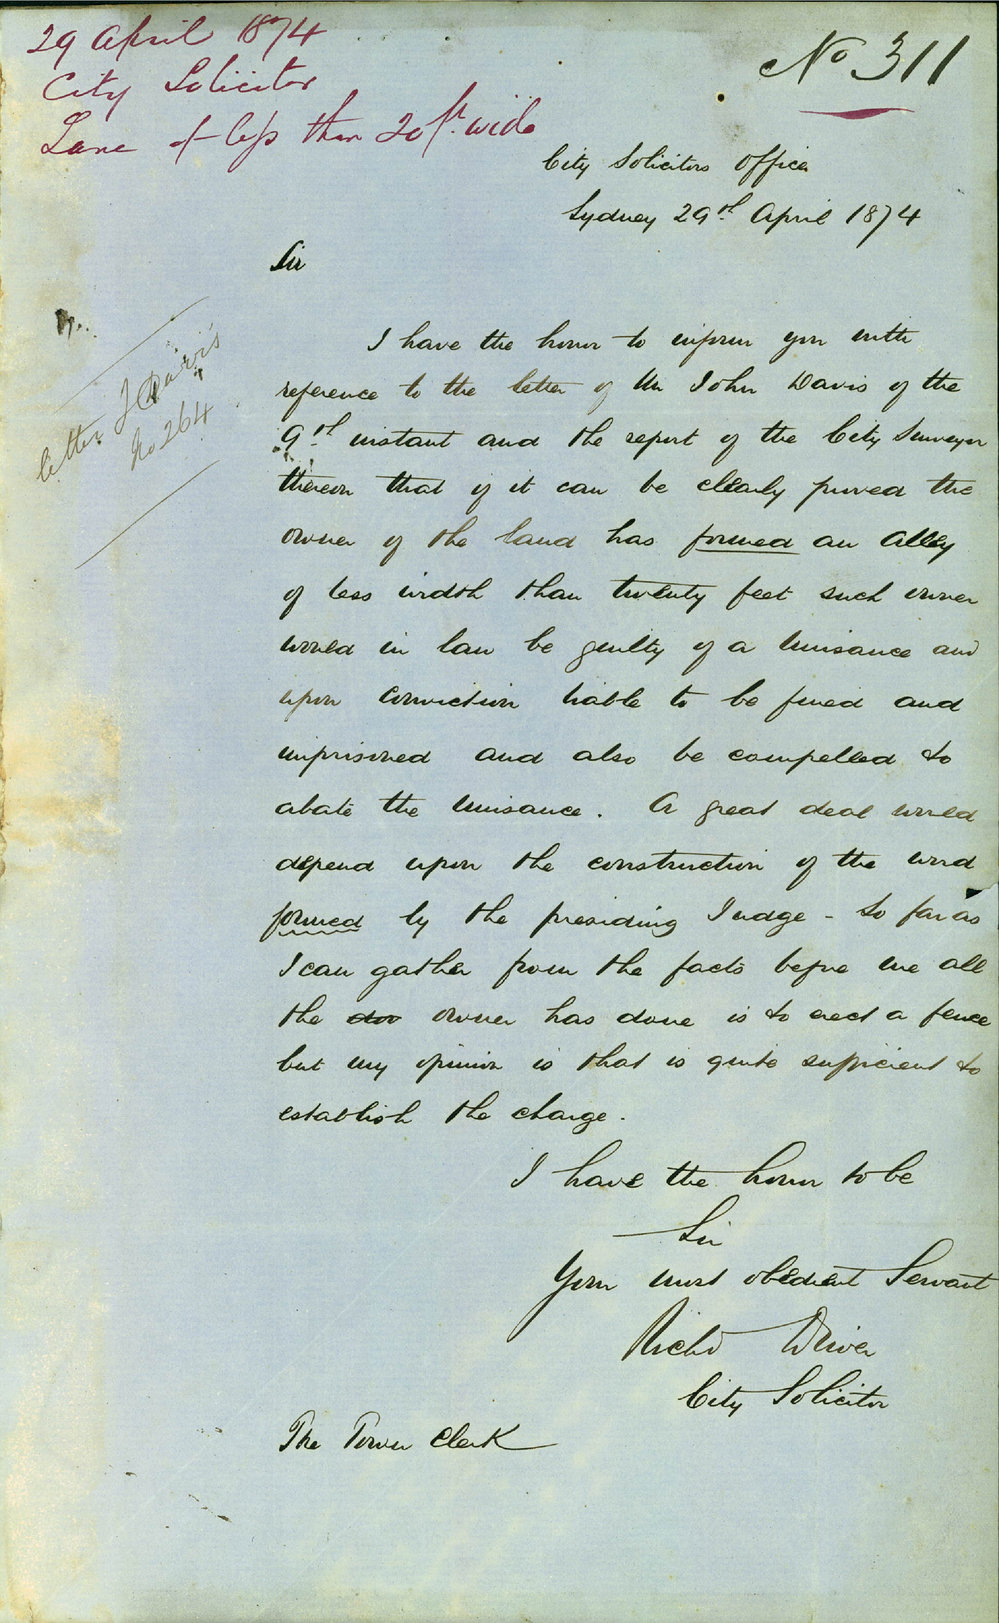 29 April 1874
City Solicitor
Lane of less than 20ft. wide
No 311
City Solicitors Office
Sydney 29th April 1874
Sir
letter J Davis
No 264
I have the honor to inform you with
reference to the letter of Mr John Davis of the
9th instant and the report of the City Surveyor
thereon that if it can be clearly proved the
owner of the land has formed an Alley
of less width than twenty feet such owner
would in law be guilty of a Nuisance and
upon conviction liable to be fined and
imprisoned and also be compelled to
abate the Nuisance. A great deal would
depend upon the construction of the word
formed by the presiding Judge - So far as
I can gather from the facts before me all
the owner has done is to erect a fence
but my opinion is that is quite sufficient to
establish the charge.
I have the honor to be
Sir
Your most obedient Servant
Richd Driver
City Solicitor
The Town Clerk